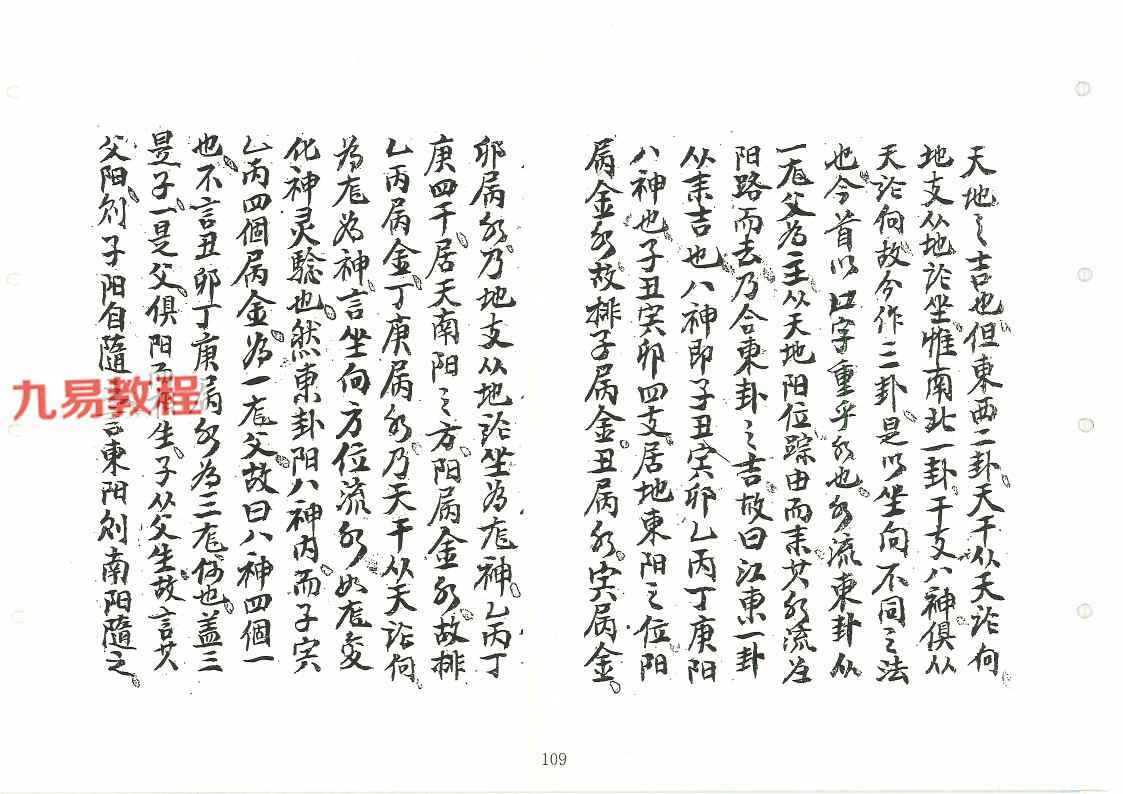 天地之吉也但東西二卦天干从天论向
地支从地论坐惟南北一卦干支八神俱从
天论何故今作二卦是以坐向不同之法
也今首以江字重乎水也水流東卦从
一龙父为主从天地阳位踪由而来其水流从
阳路而去乃合東卦之吉故曰江東一卦
从来吉也八神即子丑寅卯乙丙丁庚阳
八神也子丑寅卯四支居地東阳之位阳
属金水故排子属金丑属水寅属金
卯属水乃地支从地论坐为龙神乙丙丁
庚四干居天南阳之方阳属金水故排
乙丙属金丁庚属水乃天干从天论向
为龙为神言坐向方位流水如龙变
化神灵驗也然東卦阳八神内而子寅
乙丙四個属金为一龙父故曰八神四個一
也不言丑卯丁庚属水为三龙何也盖三
是子一是父俱阳而 生子从父生故言其
父阳则子阳自隨 言東阳则南阳隨之
九易教程
109